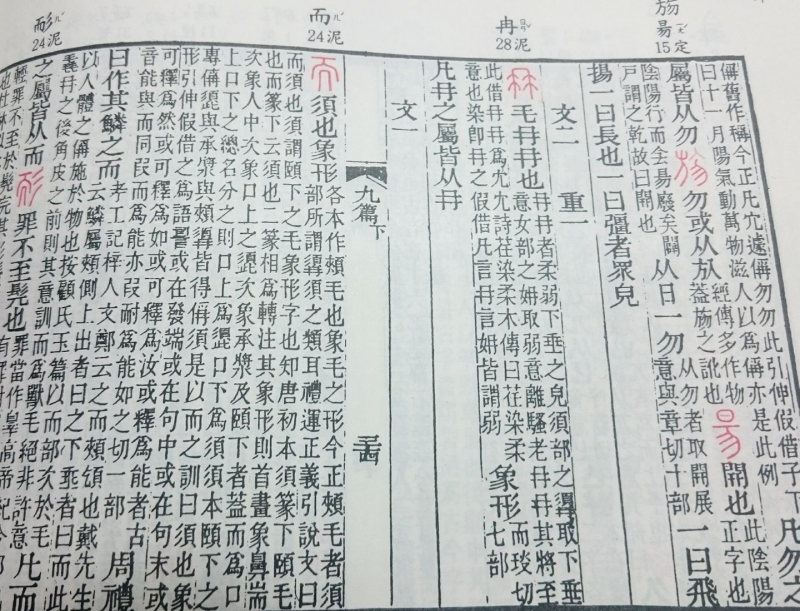 昜 ㄧㄤˊ 定 15
冉 ㄖㄢˇ 泥 28
而 ㄦˊ 泥 24
耏 ㄦˊ 泥 24
偁舊作稱今正凡冗遽偁勿勿此引伸假借子下
曰十一月陽氣動萬物滋人以爲偁亦是此例
凡勿之
屬皆从勿
勿或从㫃
經傳多作物
葢㫃之訛也
昜
開也
此陰陽
正字也
陰陽行而侌昜廢矣闢
戸謂之乾故曰開也
从日一勿
从勿者取開展
意與章切十部
一曰飛
揚一曰長也一曰彊者眾皃
文二 重一
冄
毛冄冄也
冄冄者柔弱下垂之皃須部之𩓣取下垂
意女部之姌取弱意離騷老冄冄其將至
此借冄冄爲冘冘詩荏染柔木傳曰荏染柔
意也染卽冄之假借凡言冄言姌皆謂弱
象形
而琰切
七部
凡冄之屬皆从冄
文一
九篇下
而
須也象形
各本作頰毛也象毛之形今正頰毛者須
部所謂𩓣須之類耳禮運正義引說文曰
而須也須謂頤下之毛象形字也知唐初本須篆下頤毛
也而篆下云須也二篆相爲轉注其象形則首畫象鼻耑
次象人中次象口上之髭次象承漿及頤下者葢而爲口
上口下之總名分之則口上爲髭口下爲須須本頤下之
專偁髭與承漿與頰𩓣皆得偁須是以而之訓曰須也象
形引伸假借之爲語詈或在發端或在句中或在句末或
可釋爲然或可釋爲如或可釋爲汝或釋爲能者古
音能與而同叚而爲能亦叚耐爲能如之切一部
周禮
曰作其鱗之而
考工記梓人文鄭云之而頰頜也戴先生
云鱗屬頰側上出者曰之下垂者曰而此
以人體之偁施於物也按顧氏玉篇以而部次於毛
毳冄之後角皮之前則其意訓而爲獸毛絕非許意
凡而
之屬皆从而
耏
罪不至髡也